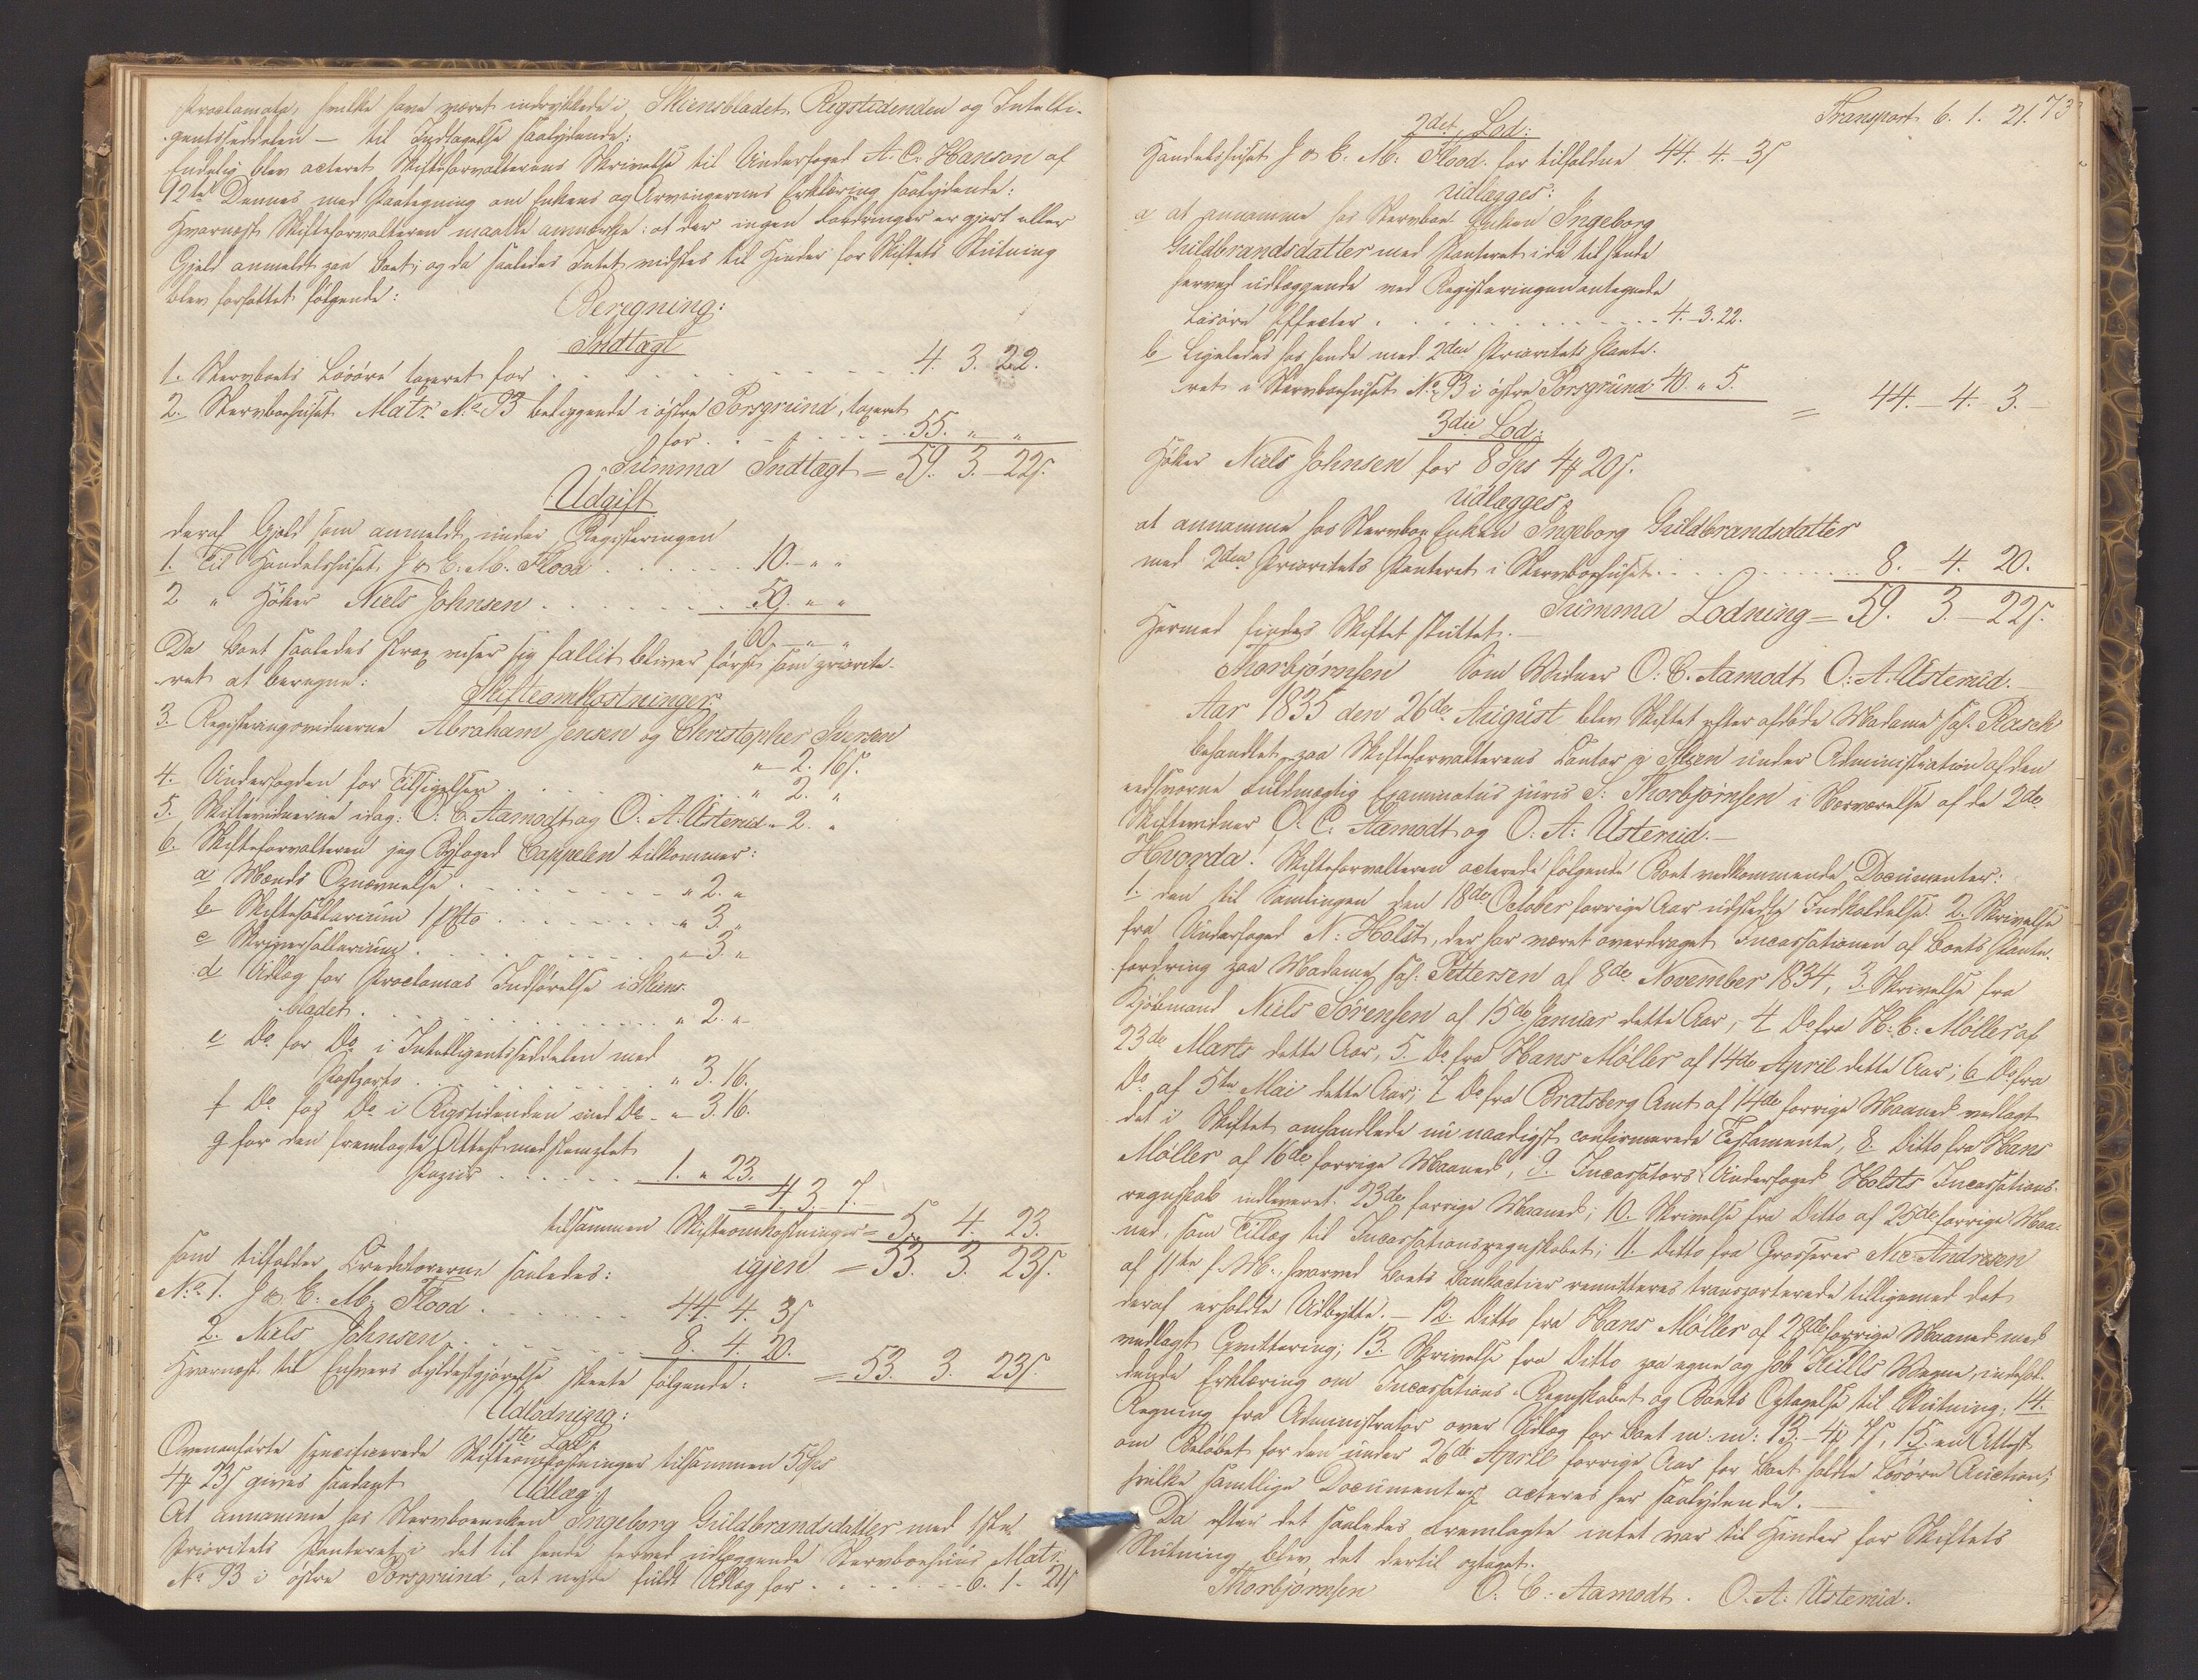 Proclamata, hvilke have været indrykkede i Skiensbladet, Rigstidenden og Intelli-
gentsseddelen – til Indtagelse saalydende:
Endelig blev acteret Skifteforvalterens Skrivelse til Underfoged A. C. Hanson af
12te Dennes med Paategning om Enkens og Arvingernes Erklæring saalydende:
Hvornæst Skifteforvalteren maatte anmærke: at der ingen Fordringer er gjort eller
Gjeld anmeldt paa Boet; og da saaledes Intet vidstes til Hinder for Skiftets Slutning
blev forfattet følgende:
Beregning:
Indtægt
1. Stervboets Løsøre taxeret for . . . 4. 3. 22.
2. Stervboehuset Matr. No 93 beliggende i østre Porsgrund, taxeret
for . . . 55. " "
Summa Indtægt = 59. 3. – 22 s.
Udgift
deraf Gjeld som anmeldt under Registeringen
1. Til Handelshuset J & C. M. Flood . . . 10. – " "
2 " Høker Niels Johnsen . . . 50. " "
60. – " "
Da Boet saaledes strax viser sig fallit bliver først som priorite-
ret at beregne:
Skifteomkostninger:
3. Registeringsvidnerne Abraham Jensen og Christopher Iversen
" – 2. 16 s.
4. Underfogden for Tilsigelser . . . " 2. "
5. Skiftevidnerne idag: O. C. Aamodt og O. A. Usterud " 2. "
6. Skifteforvalteren jeg Byfoged Cappelen tilkommer:
a Mænds Opnævnelse . . . " 2. "
b Skiftesallarium 1 pCto . . . " 3. "
c Skriversallarium . . . " 3. "
d Udlæg for Proclamas Indførelse i Skiens-
bladet . . . " 2. "
e Do for Do i Intelligentsseddelen med
Postporto . . . " 3. 16.
f Do for Do i Rigstidenden med Do – " 3. 16.
g for den fremlagte Attest med stemplet
Papiir . . . 1. " 23.
= 4. 3. 7.
tilsammen Skifteomkostninger = 5. 4. 23.
igjen = 53. 3. 23 s.
som tilfalder Creditorerne saaledes:
No 1. J & C. M. Flood . . . 44. 4. 3 s
2. Niels Johnsen . . . 8. 4. 20.
= 53. 3. 23 s.
Hvornæst til Enhvers Fyldestgjørelse skeete følgende:
Udlodning:
1ste Lod:
Ovenanførte specificerede Skifteomkostninger tilsammen 5 Spd
4 # 23 s gives saadant
Udlæg:
At annamme hos Stervboenken Ingeborg Guldbrandsdatter med 1ste
Prioritets Panteret i det til hende herved udlæggende Stervboehuus Matr.
No 93 i østre Porsgrund, at nyde fuldt Udlæg for . . . 6. 1. 21 s
Transport 6. 1. 21. 73
2det Lod:
Handelshuset J & C. M. Flood for tilfaldne 44. 4. – 3 s
udlægges:
a at annamme hos Stervboe Enken Ingeborg
Guldbrandsdatter med Panteret i de til hende
herved udlæggende ved Registeringen antegnede
Løsøre Effecter . . . 4. – 3. 22.
b Ligeledes hos hende med 2den Prioritets Pante-
ret i Stervboehuset No 93 i østre Porsgrund 40. " 5.
= 44. – 4. – 3. –
3die Lod:
Høker Niels Johnsen for 8 Spd 4 # 20 s.
udlægges:
at annamme hos Stervboe Enken Ingeborg Guldbrandsdatter
med 2den Prioritets Panteret i Stervboehuset . . . 8. – 4. 20.
Summa Lodning = 59. 3. – 22 s.
Hermed findes Skiftet sluttet. –
Thorbjørnsen Som Vidner O. C. Aamodt O. A. Usterud. –
Aar 1835 den 26de August blev Skiftet efter afdøde Madame Sal. Rasch
behandlet paa Skifteforvalterens Contor i Skien under Administration af den
eedsvorne Fuldmægtig Examinatus juris S. Thorbjørnsen i Nærværelse af de 2de
Skiftevidner O. C. Aamodt og O. A. Usterud. –
Hvorda! Skifteforvalteren acterede følgende Boet vedkommende Documenter:
1. den til Samlingen den 18de October forrige Aar udstedte Indkaldelse. 2. Skrivelse
fra Underfoged N. Holst, der har været overdraget Incassationen af Boets Pante-
fordring paa Madame Sal. Pettersen af 8de November 1834, 3. Skrivelse fra
Kjøbmand Niels Sörensen af 15de Januar dette Aar; 4 Do fra H. C. Möller af
23de Marts dette Aar, 5. Do fra Hans Möller af 14de April dette Aar; 6 Do fra
Do af 5te Mai dette Aar; 7 Do fra Bratsberg Amt af 14de forrige Maaned vedlagt
det i Skiftet omhandlede nu naadigst confirmerede Testamente, 8. Ditto fra Hans
Möller af 16de forrige Maaned, 9. Incassators Underfoged Holsts Incassations-
regnskab indleveret 23de forrige Maaned; 10. Skrivelse fra Ditto af 25de forrige Maa-
ned, som Tillæg til Incassationsregnskabet; 11. Ditto fra Grosserer Nic Andresen
af 11te f. M., hvorved Boets Bankactier remitteres transporterede tilligemed det
deraf erholdte Udbytte. – 12. Ditto fra Hans Möller af 28de forrige Maaned med
vedlagt Qvittering; 13. Skrivelse fra Ditto paa egne og Job Kulls Vegne, indehol-
dende Erklæring om Incassations-Regnskabet og Boets Optagelse til Slutning; 14.
Regning fra Administrator over Udlæg for Boet m. m: 13. – 4 # 7 s, 15. en Attest
om Beløbet for den under 26de April forrige Aar for Boet holdte Løsøre Auction;
hvilke samtlige Documenter acteres her saalydende. –
Da efter det saaledes Fremlagte intet var til Hinder for Skiftets
Slutning, blev det dertil optaget.
Thorbjørnsen O. C. Aamodt. O. A. Usterud.